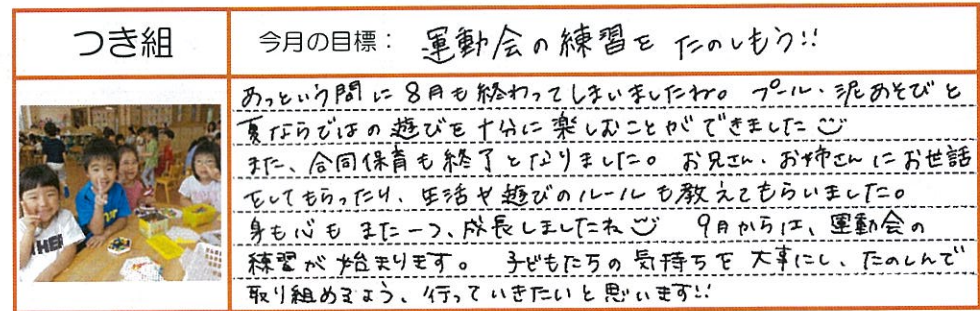 つき組
今月の目標： 運動会の練習を たのしもう!!
あっという間に8月も終わってしまいましたね。プール・泥あそびと
夏ならではの遊びを十分に楽しむことができました
また、合同保育も終了となりました。お兄さん、お姉さんにお世話
をしてもらったり、生活や遊びのルールも教えてもらいました。
身も心も また一つ、成長しましたね 9月からは、運動会の
練習が始まります。 子どもたちの気持ちを大事にし、たのしんで
取り組めるよう、行っていきたいと思います!!